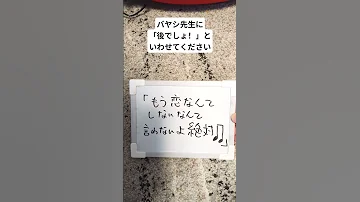 バヤシ先生に
「後でしょ！」と
いわせてください
「もう恋なんて
しないなんて
言わないよ絶対♫」